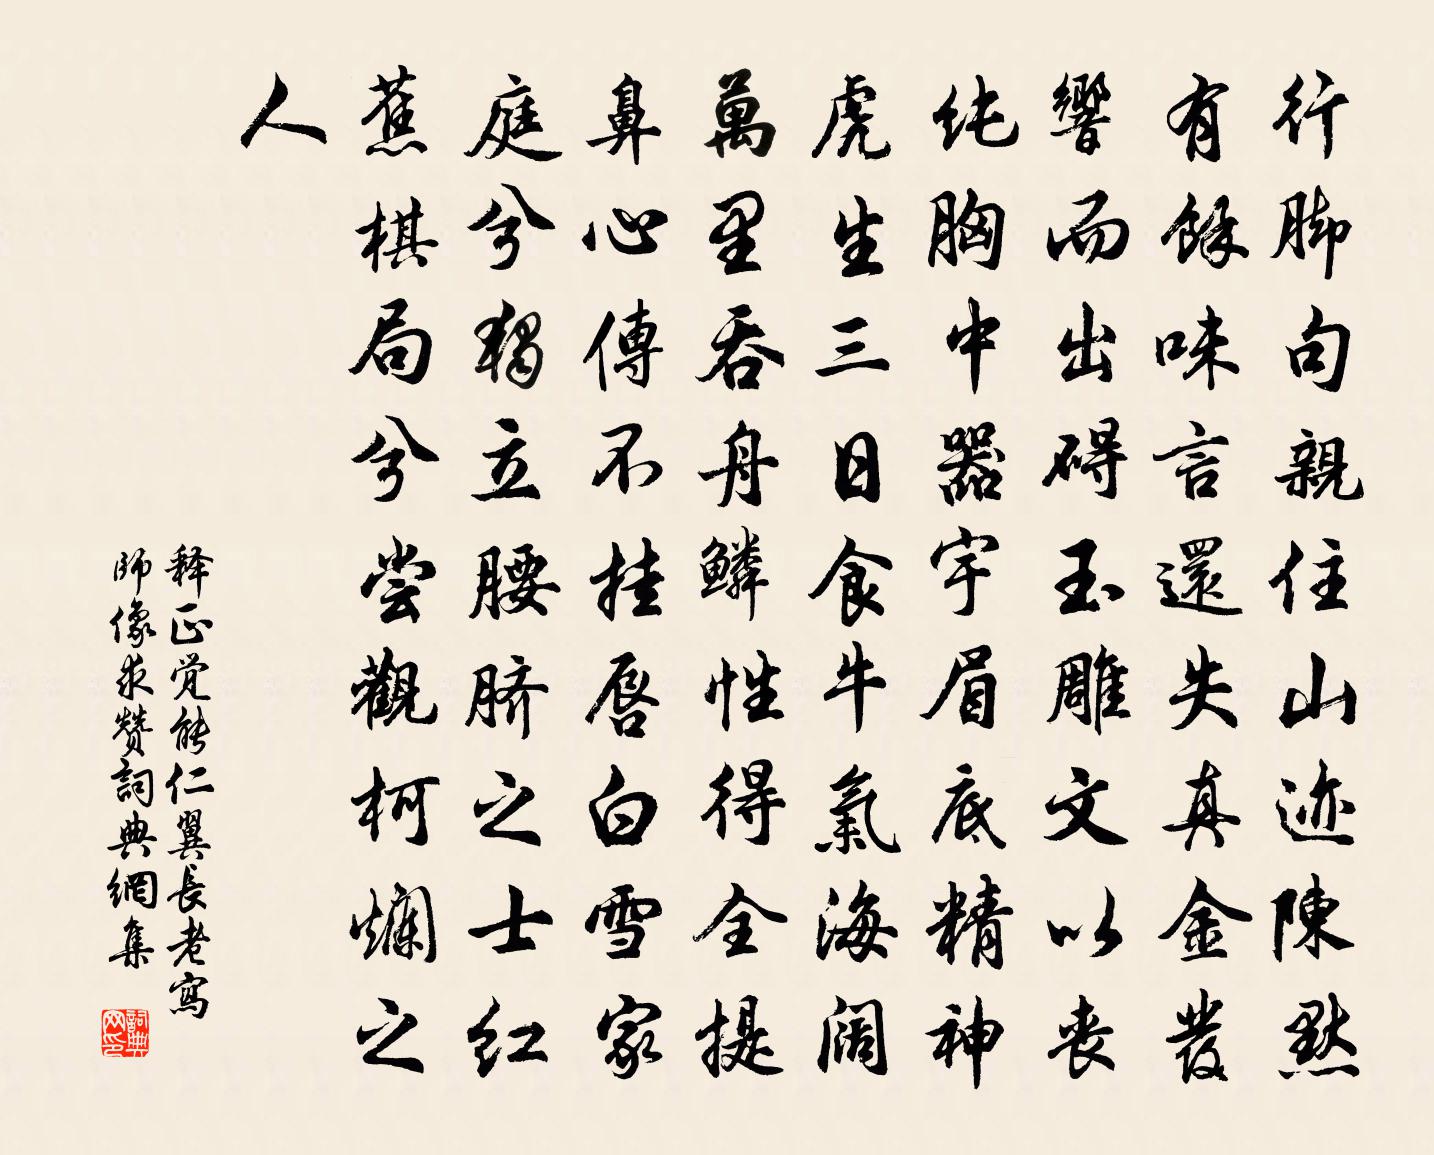 行脚句親住山迹陳默
有餘味言還失真金發
響而出碍玉雕文以喪
纯胸中器宇眉底精神
虎生三日食牛氣海阔
萬里吞舟鳞性得全提
鼻心傳不挂唇白雪家
庭兮獨立腰脐之士红
蕉棋局兮尝觀柯爛之
人
释正觉能仁翼長老寫
師像求赞詞典網集
詞典网